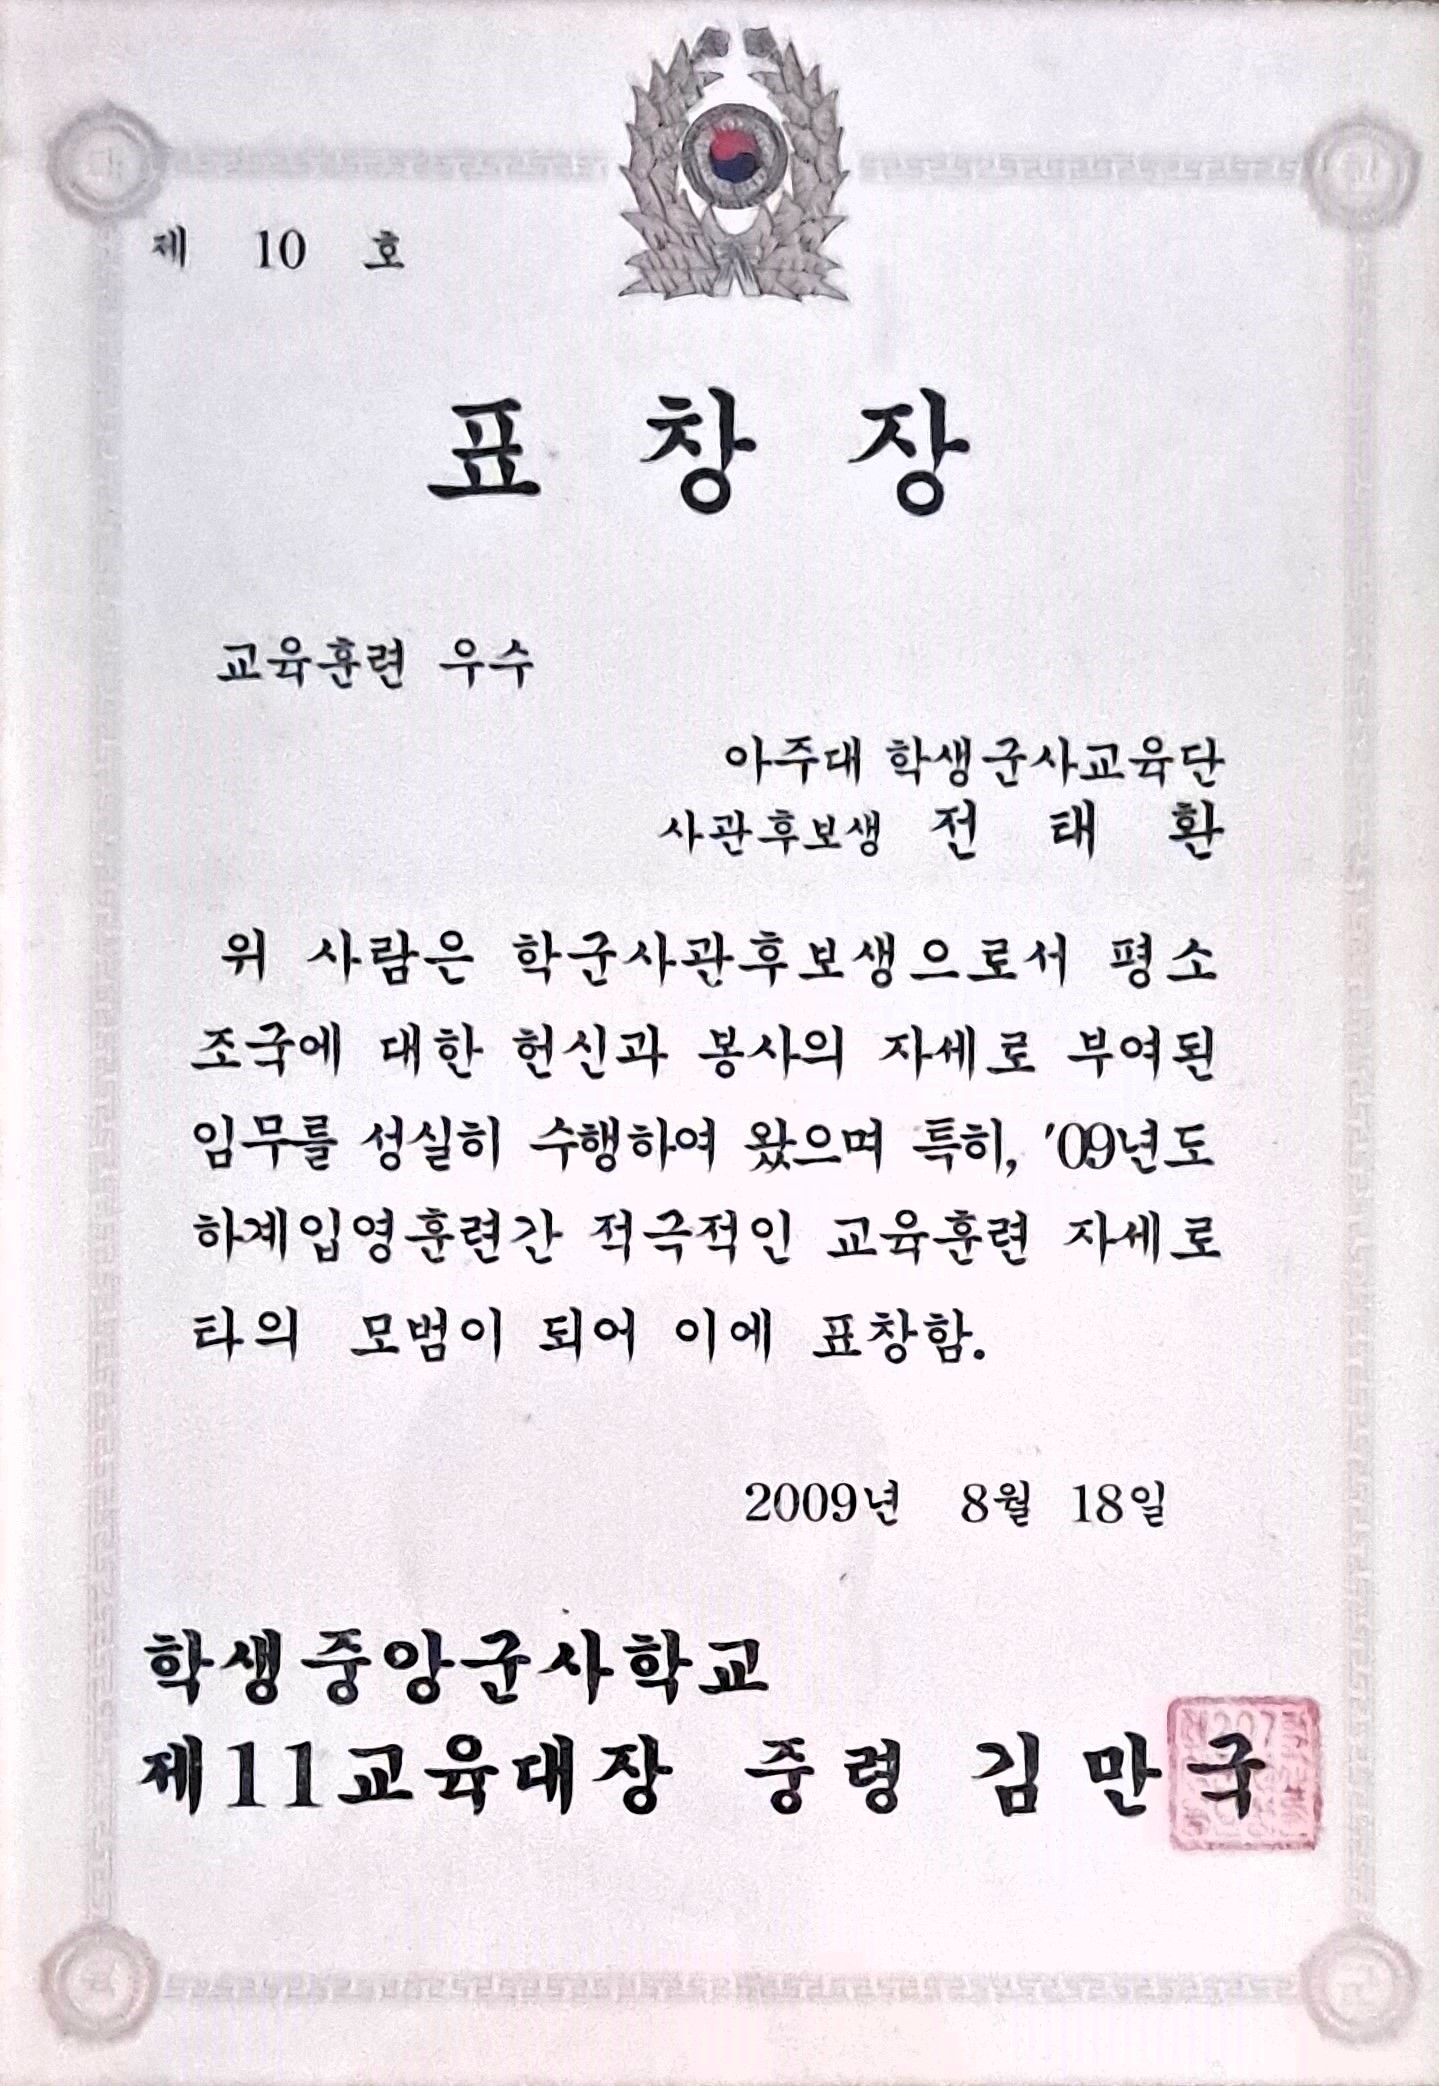 제 10 호
표 창 장
교육훈련 우수
아주대 학생군사교육단
사관후보생 전 태 환
위 사람은 학군사관후보생으로서 평소
조국에 대한 헌신과 봉사의 자세로 부여된
임무를 성실히 수행하여 왔으며 특히, '09년도
하계입영훈련간 적극적인 교육훈련 자세로
타의 모범이 되어 이에 표창함.
2009년 8월 18일
학생중앙군사학교
제11교육대장 중령 김만국